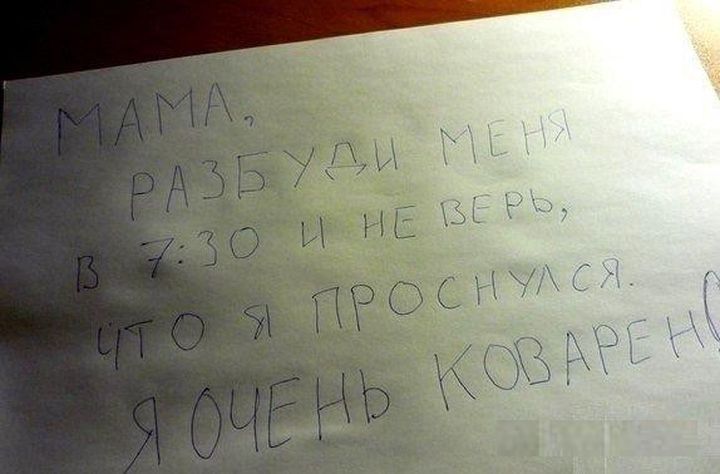 МАМА,
РАЗБУДИ МЕНЯ
В 7:30 И НЕ ВЕРЬ,
ЧТО Я ПРОСНУЛСЯ.
Я ОЧЕНЬ КОВАРЕН